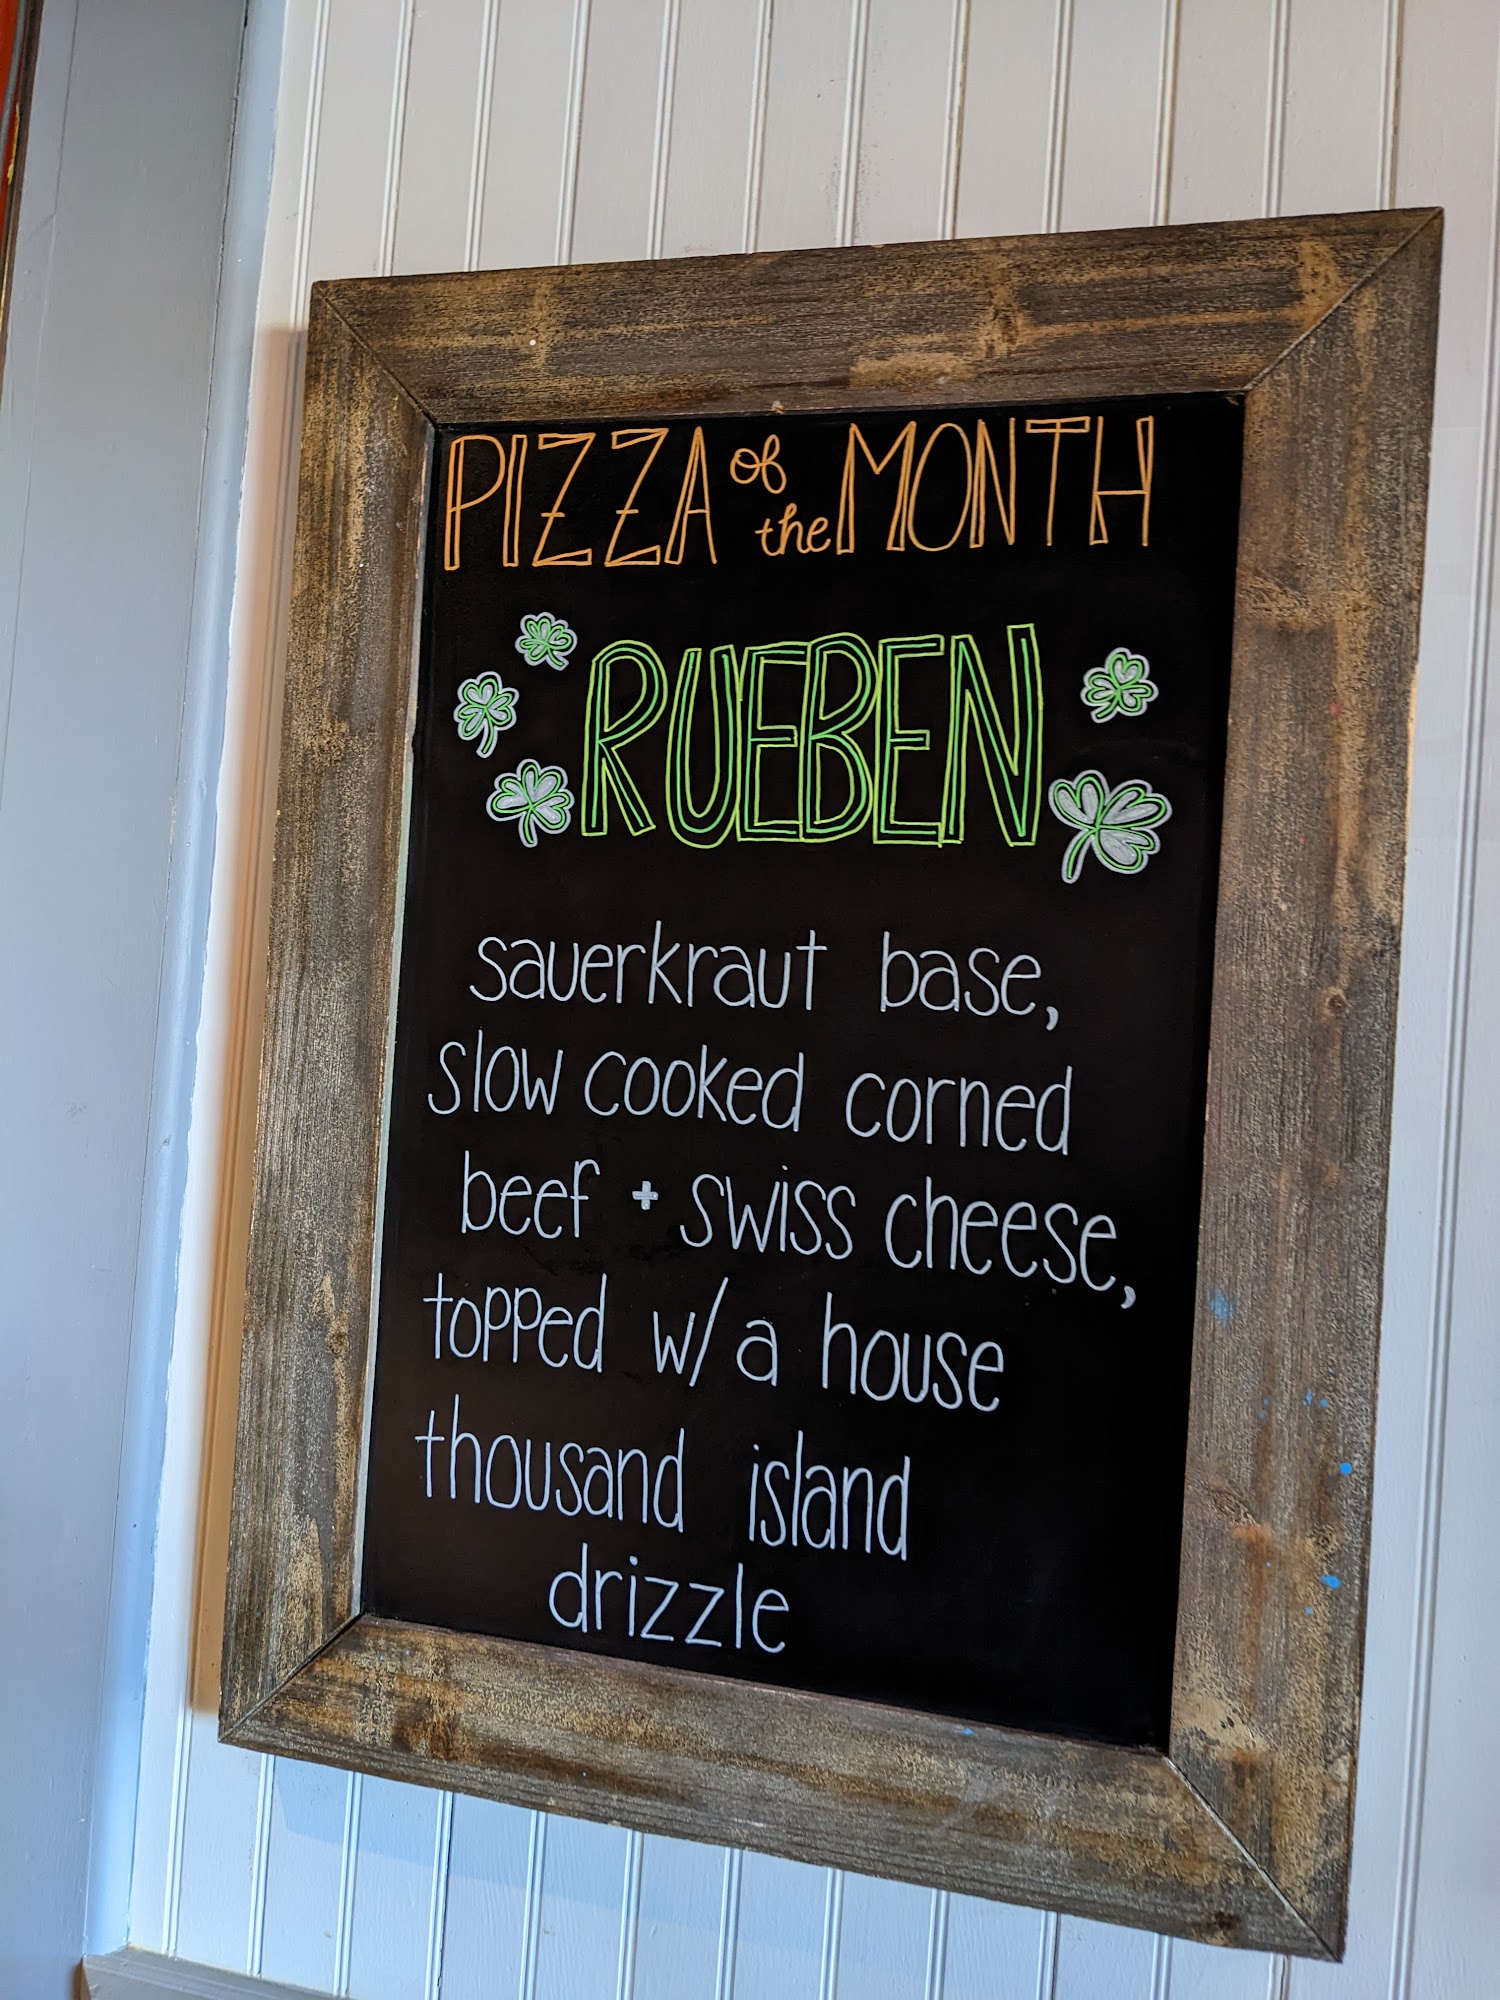 PIZZA of the MONTH
RUEBEN
sauerkraut base,
slow cooked corned
beef + swiss cheese,
topped w/ a house
thousand island
drizzle